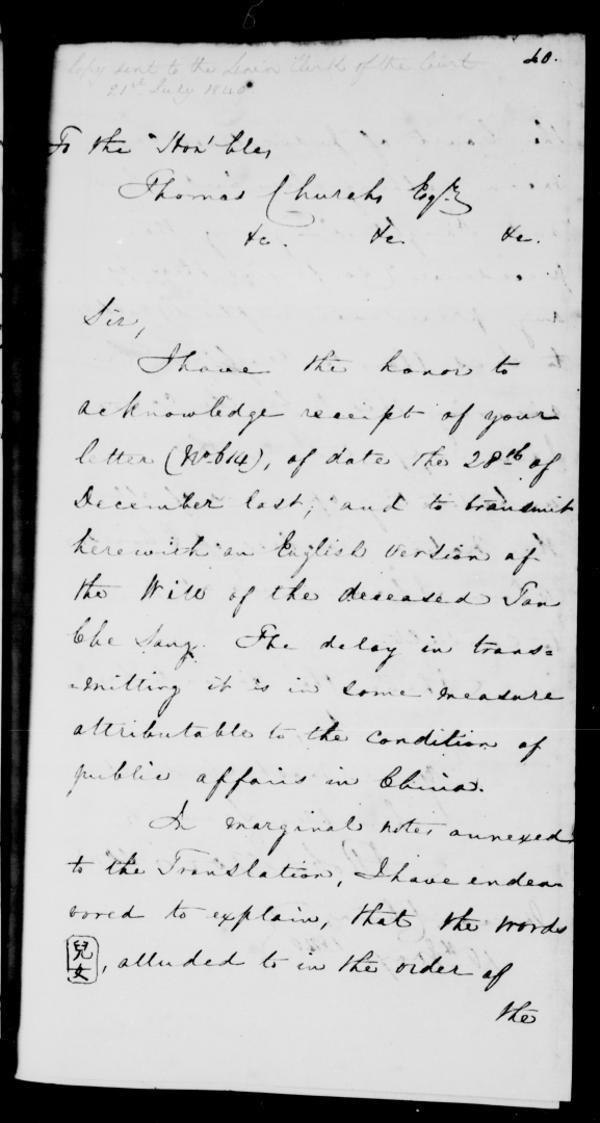 40.
Copy sent to the Senior Clerk of the Court
21st July 1840
To the Hon'ble,
Thomas Church, Esqre
&c. &c. &c.
Sir,
I have the honor to
acknowledge receipt of your
letter (No 614), of date the 28th of
December last; and to transmit
herewith an English version of
the Will of the deceased Tan
Che Sang. The delay in trans=
=mitting it is in some measure
attributable to the condition of
public affairs in China.
In marginal notes annexed
to the Translation, I have endea=
vored to explain, that the words
兒女, alluded to in the order of
the